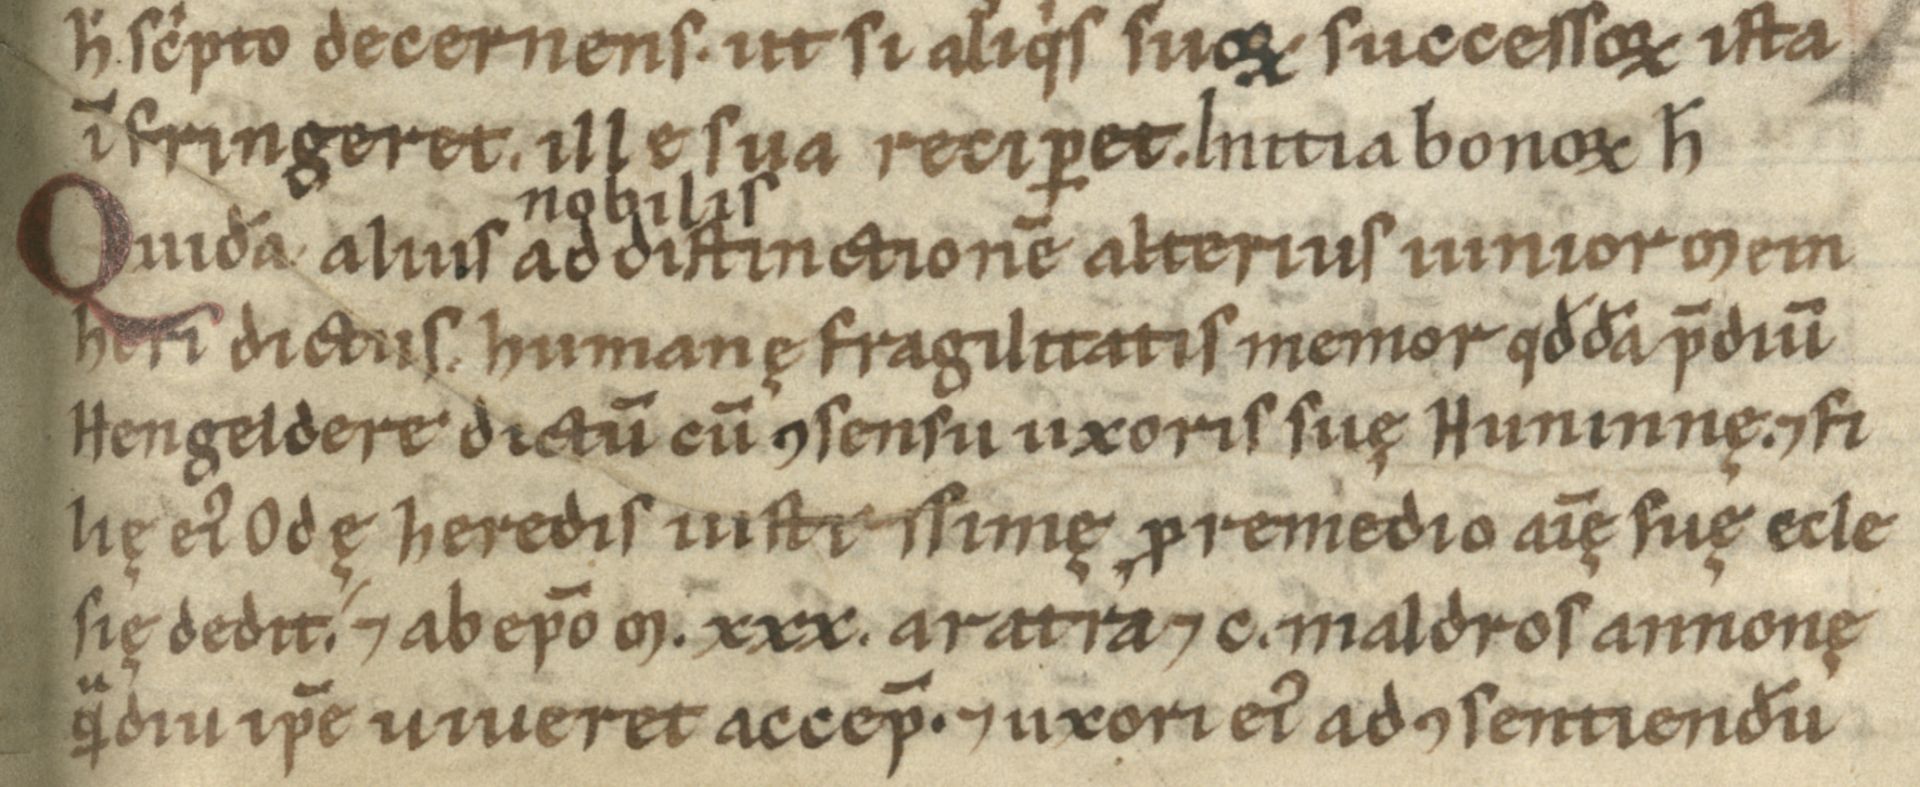 h̄. sc̓pto decernens. ut si aliq̓s suoꝝ successoꝝ ista
īfringeret. ille sua reciꝑet. Initia bonoꝝ h̄
nobilis
Quidā alius ad distinctionē alterius iunior Mein
heri dictus. humanę fragilitatis memor qđdā p̄diū
Hengeldere dictū cū ꝯsensu uxoris suę Huninnę. ⁊ fi
lię ei᾽ Odę heredis iustissimę ꝓ remedio aīę suę ecle
się dedit. ⁊ ab ep̄o M. xxx. aratra ⁊ c. maldros annonę
u
q̄diu ip̄e uiueret accep̄. ⁊ uxori ei᾽ ad ꝯsentiendū